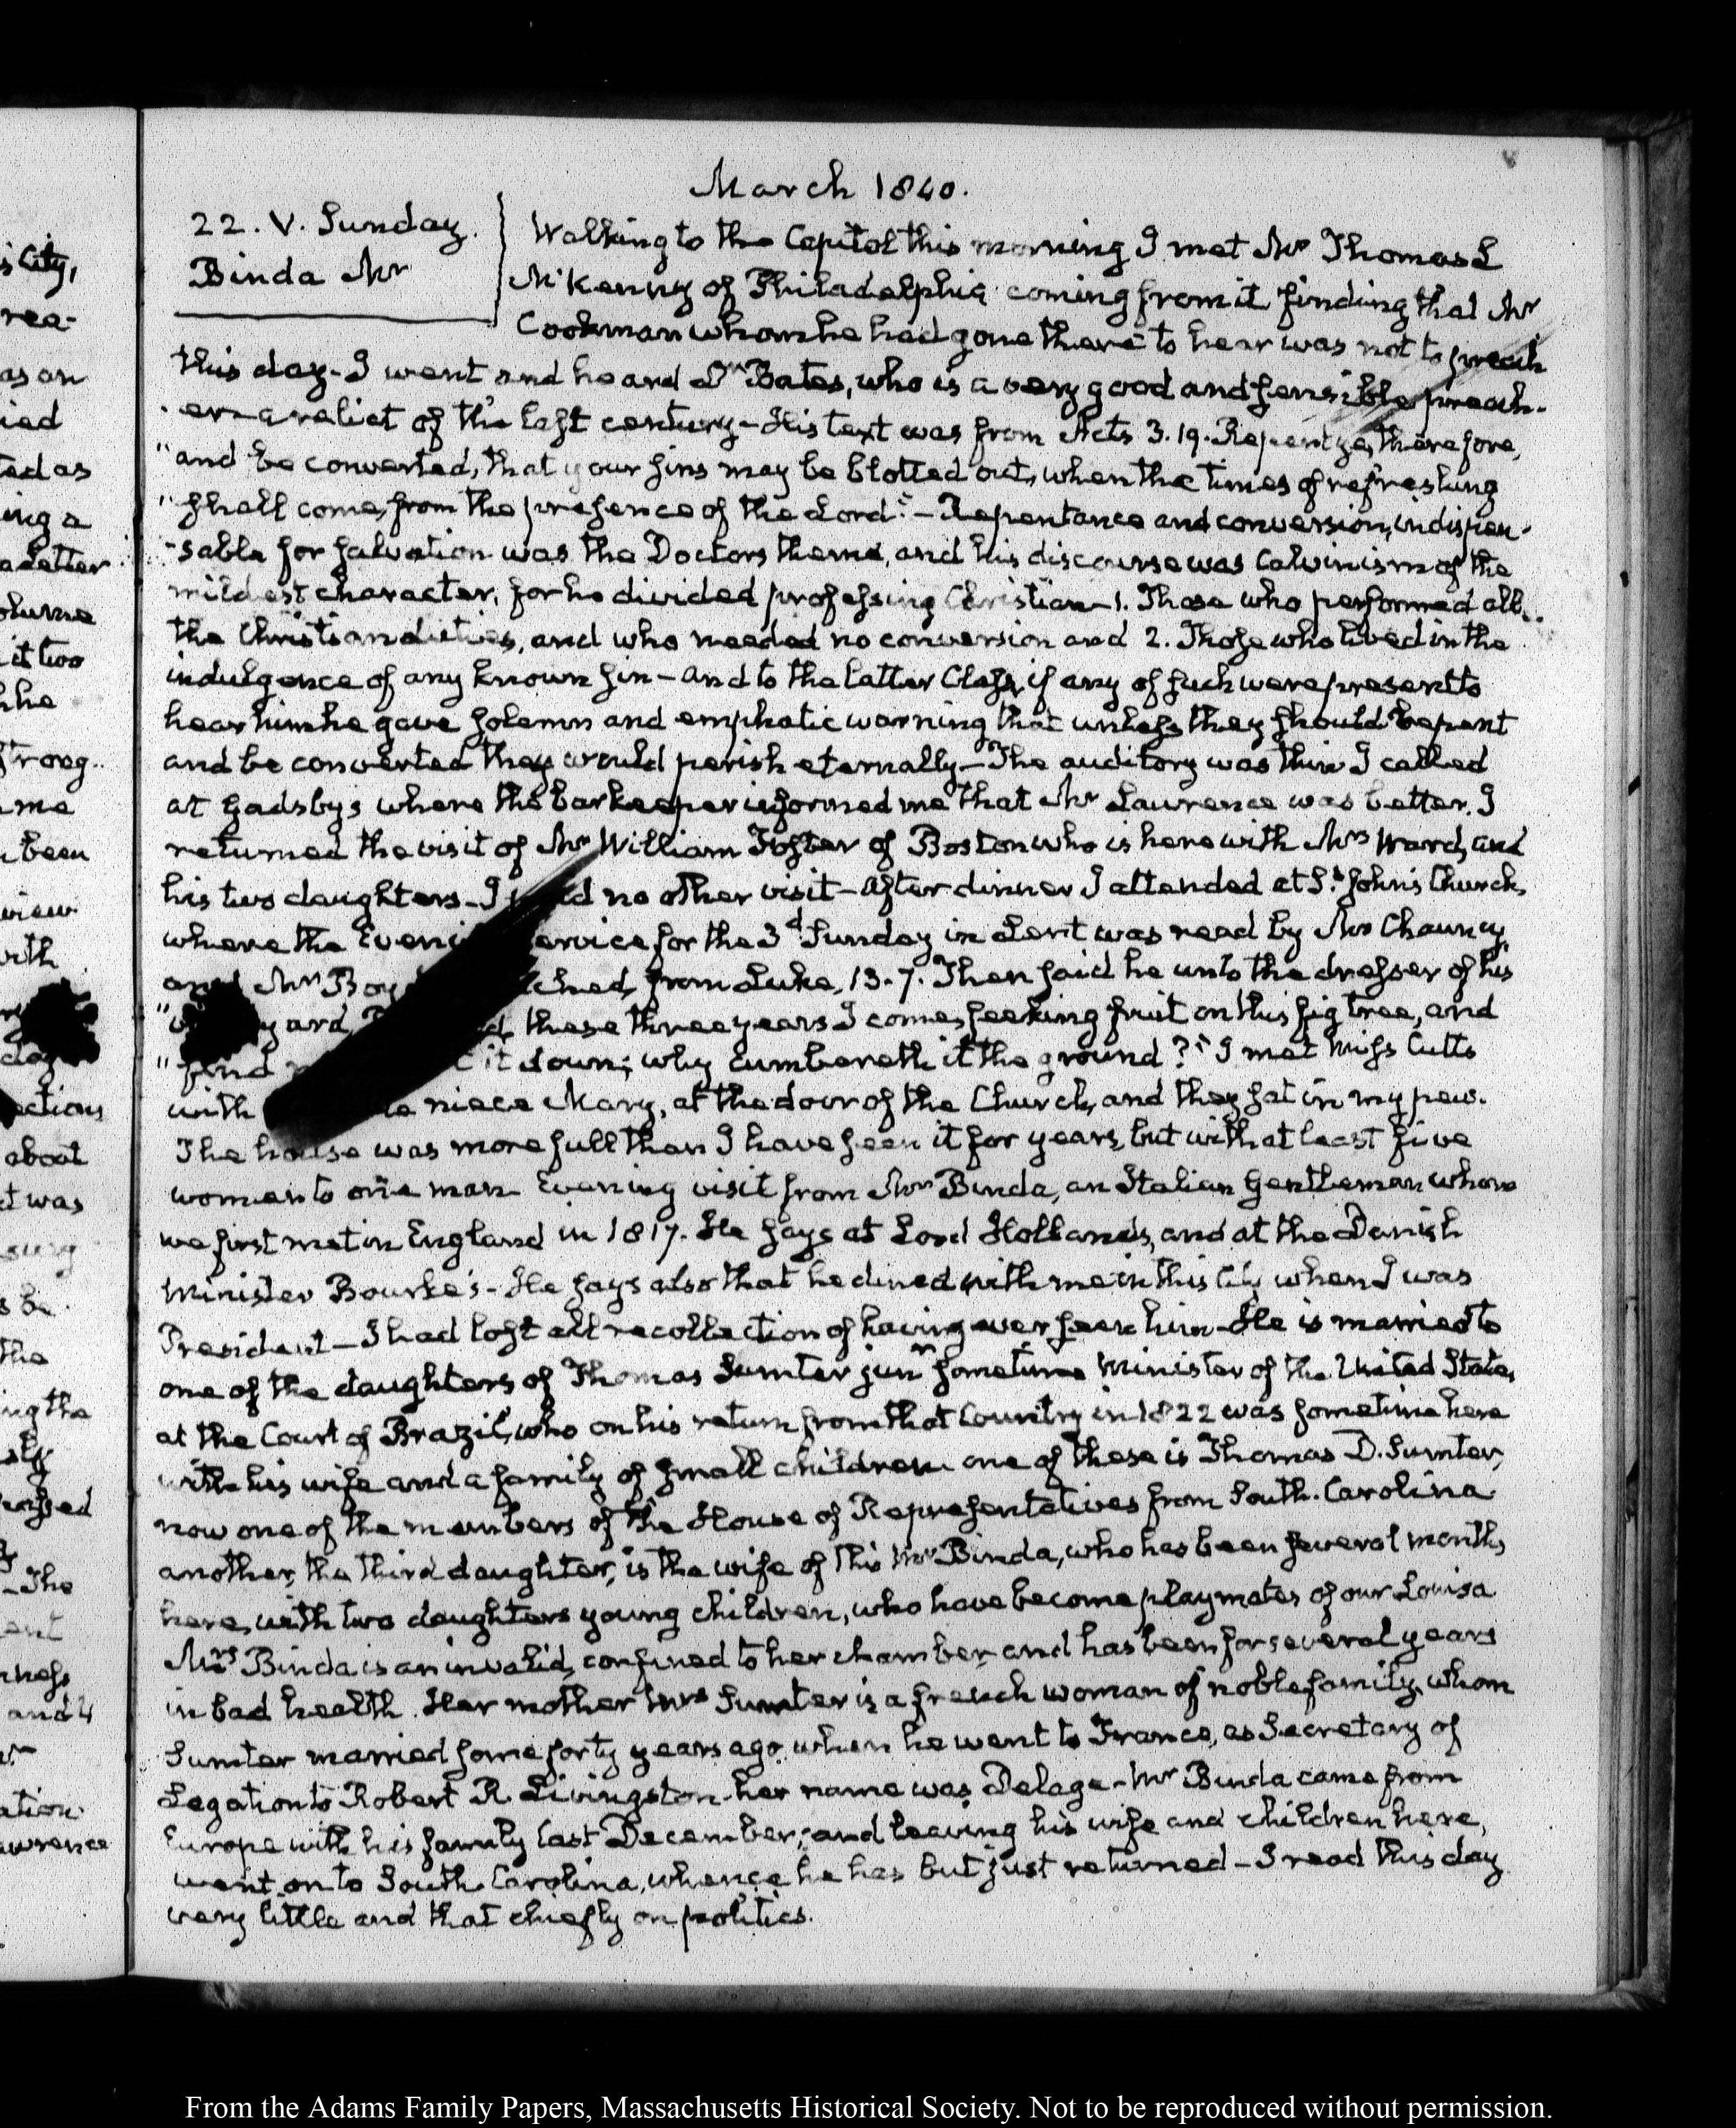 March 1840.
22. V. Sunday.
Binda Mr
Walking to the Capitol this morning I met Mr Thomas L
McKenny of Philadelphia coming from it finding that Mr
Cookman whom he had gone there to hear was not to preach
this day. I went and heard Dr Bates, who is a very good and sensible preach-
er a relict of the last century. His text was from Acts 3.19. Repent ye, therefore,
"and be converted, that your sins may be blotted out, when the times of refreshing
"shall come, from the presence of the Lord." - Repentance and conversion, indispen-
-sable for salvation was the Doctors theme, and his discourse was Calvinism of the
mildest character, for he divided professing Christians 1. Those who performed all
the Christian duties, and who needed no conversion and 2. Those who lived in the
indulgence of any known sin - and to the latter Class, if any of such were present to
hear him he gave solemn and emphatic warning that unless they should repent
and be converted they would perish eternally - The auditory was thin I called
at Gadsby's where the barkeeper informed me that Mr Lawrence was better. I
returned the visit of Mr William Foster of Boston who is here with Mrs Ward, and
his two daughters - I no other visit - After dinner I attended at St. John's Church,
where the for the 3d Sunday in Lent was read by Mr Chauncy,
and Mr from Luke, 13.7. Then said he unto the dresser of his
" these three years I come, seeking fruit on this fig tree, and
"find it down; why cumbereth it the ground?" I met Miss Cutts
with niece Mary, at the door of the Church, and they sat in my pew.
The house was more full than I have seen it for years, but with at least five
women to one man. Evening visit from Mr Binda, an Italian Gentleman whom
we first met in England in 1817. He says at Lord Holland's, and at the Danish
Minister Bourke's - He says also that he dined with me in this City when I was
President - I had lost all recollection of having ever seen him - He is married to
one of the daughters of Thomas Sumter junr sometime Minister of the United States
at the Court of Brazil, who on his return from that Country in 1822 was sometime here
with his wife and a family of small children one of these is Thomas D. Sumter,
now one of the members of the House of Representatives from South-Carolina
another, the third daughter, is the wife of this Mr Binda, who has been several months
here, with two daughters young children, who have become playmates of our Louisa
Mrs Binda is an invalid, confined to her chamber and has been for several years
in bad health. Her mother Mrs Sumter is a french woman of noble family, whom
Sumter married some forty years ago when he went to France, as Secretary of
Legation to Robert R. Livingston - her name was Delage - Mr Binda came from
Europe with his family last December, and leaving his wife and children here,
went on to South Carolina, whence he has but just returned - I read this day
very little and that chiefly on politics.
From the Adams Family Papers, Massachusetts Historical Society. Not to be reproduced without permission.